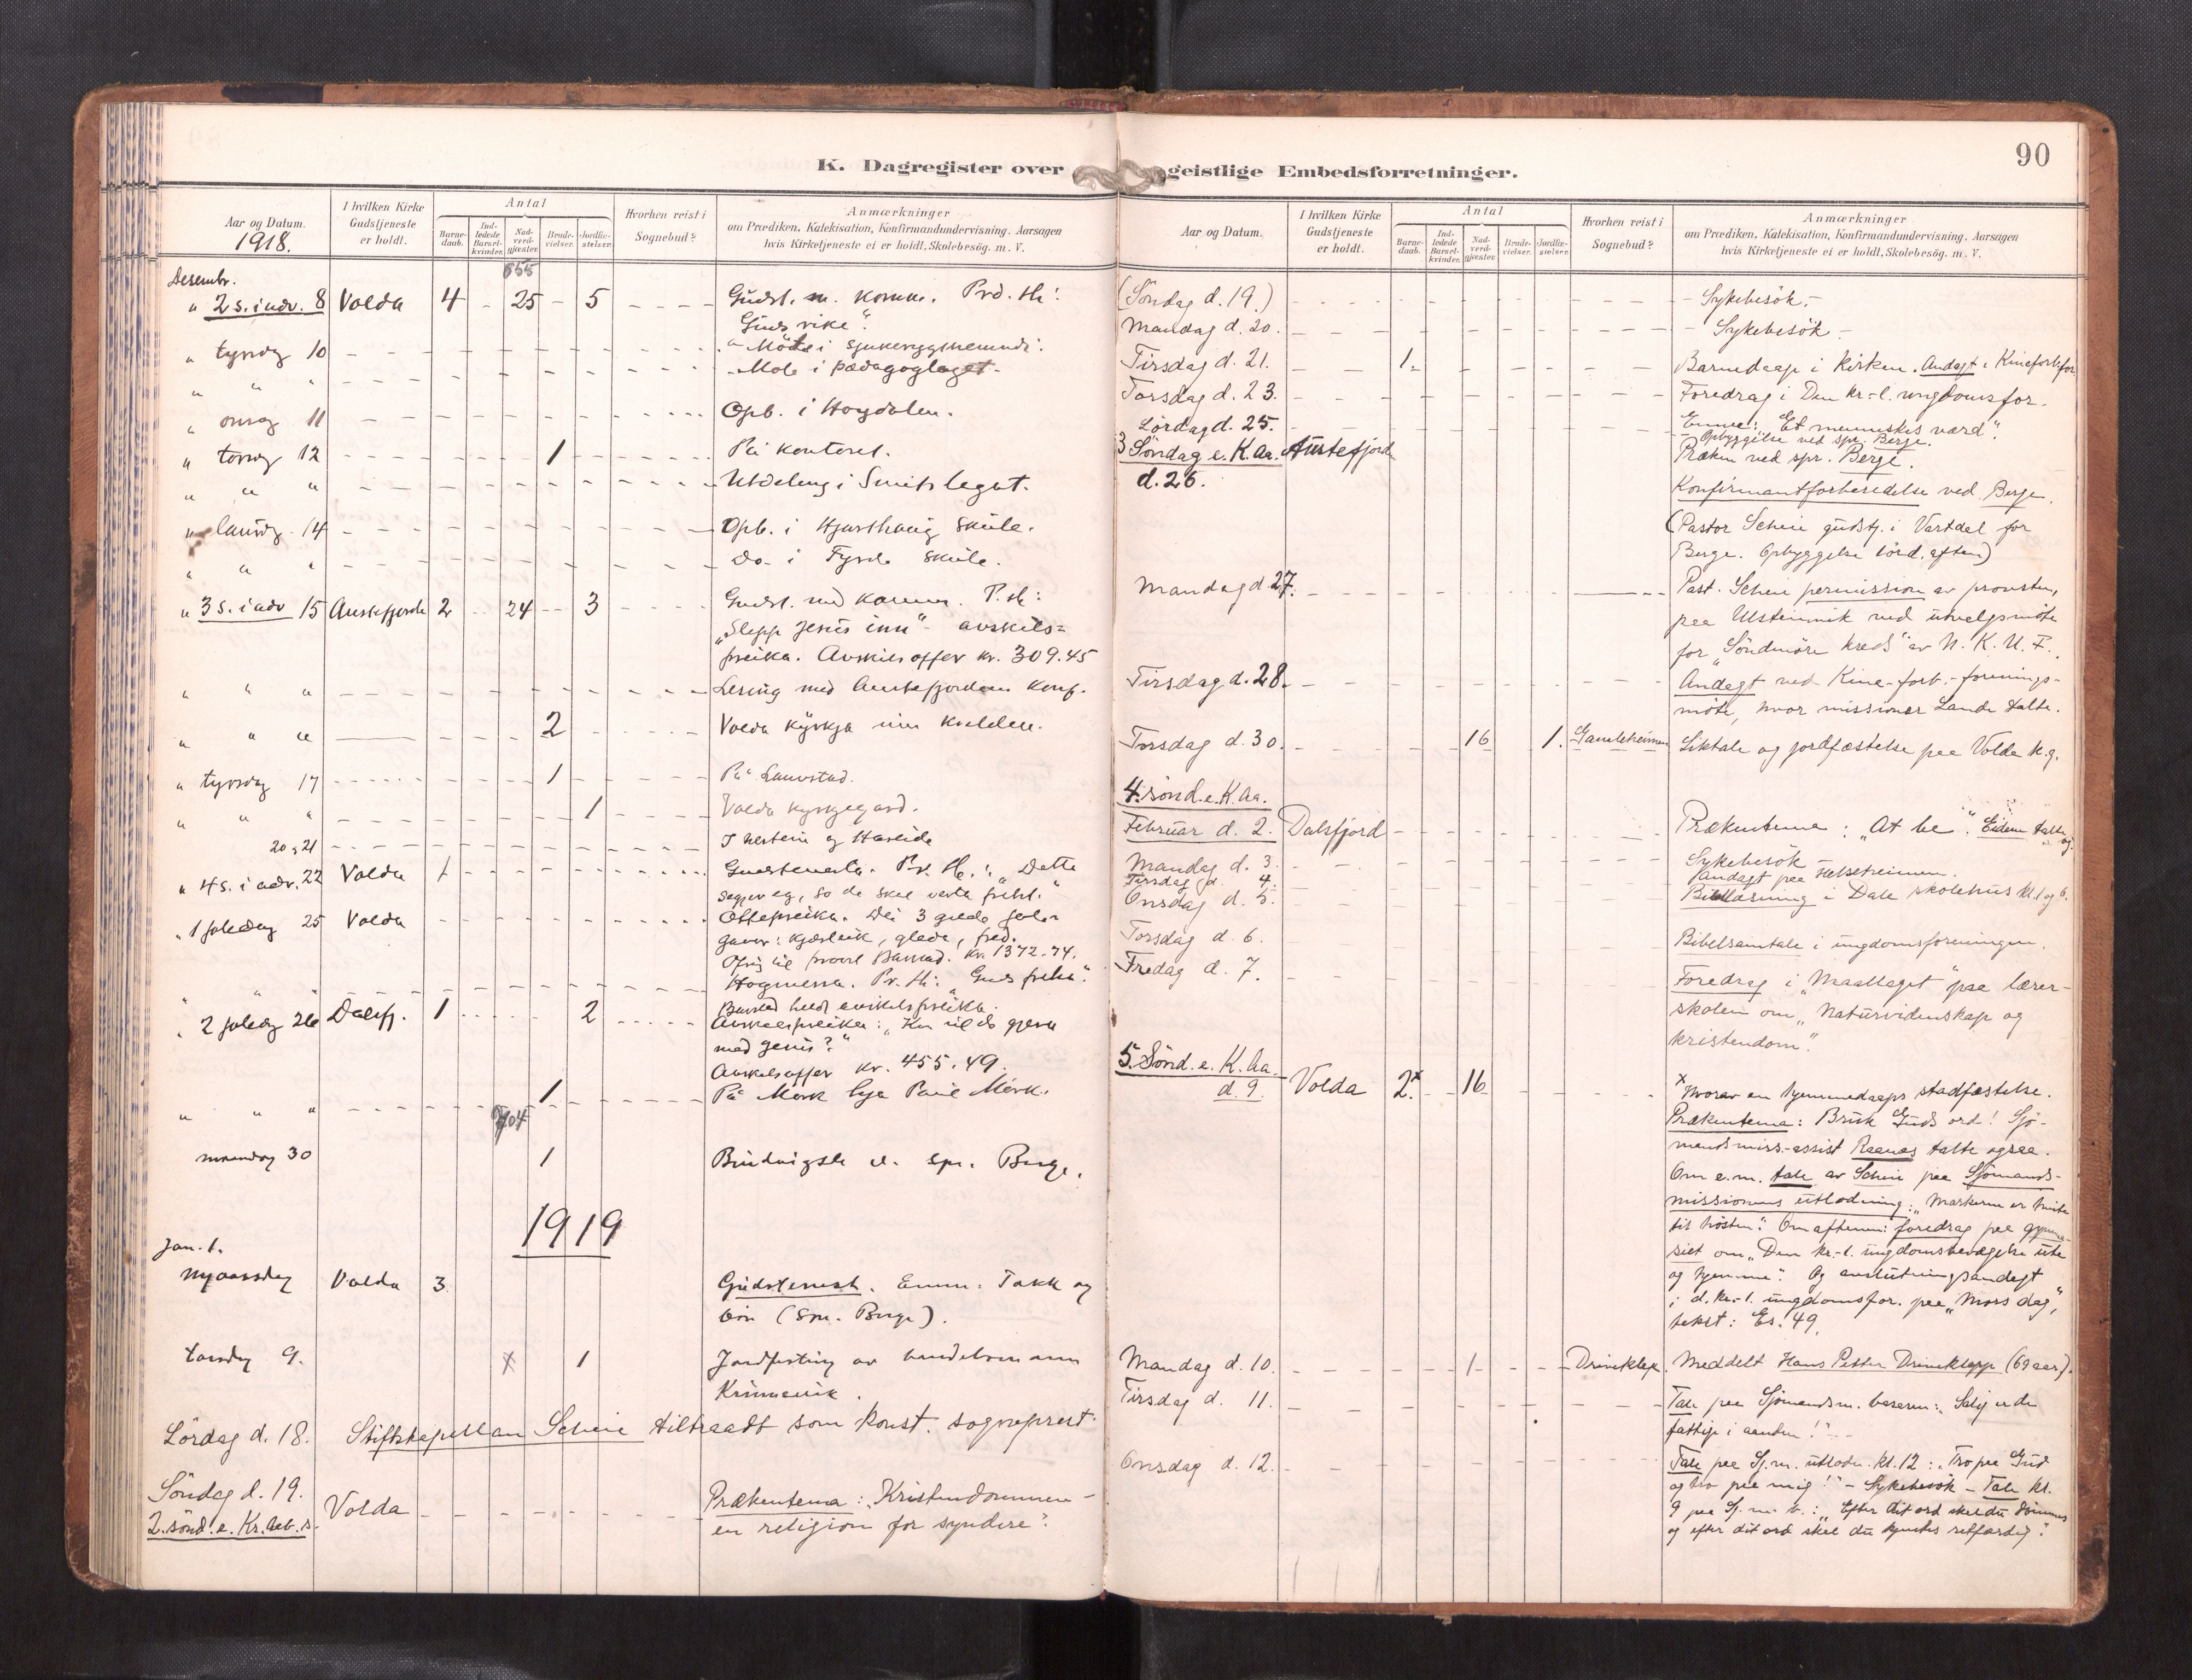 90
K. Dagregister over geistlige Embedsforretninger.
Aar og Datum.
1918.
I hvilken Kirke Gudstjeneste er holdt.
Antal
Barne-daab.
Ind-ledede Barsel-kvinder.
Nad-verd-gjester.
Brude-vielser.
Jordfæ-stelser.
Hvorhen reist i Sognebud?
Anmærkninger
om Prædiken, Katekisation, Konfirmandundervisning. Aarsagen
hvis Kirketjeneste ei er holdt, Skolebesög. m. V.
655
Desembr.
" 2 s. i adv. 8 Volda 4 25 5 Gudst. m. komm. Prd. th:
Guds rike".
" tysdag 10 Möte i
" " " Mote i pædagoglaget.
" onsdag 11 Opb. i Høydalen.
" torsdag 12 1 På kontoret.
" " " Utdeling i Smiths legat.
" laurdg 14 Opb. i Hjarthaug skule.
" " " Do i Fyrde skule.
" 3 s. i adv 15 Austefjorde 2 24 3 Gudst. med komm. P. th:
"Slepp Jesus inn" - avskils=
preika. Avskilsoffer kr. 309.45
" " " Lesing med Austefjordens konf.
" " " 2 Volda kyrkja um kvelden.
" tysdag 17 1 På Lauvstad.
" " " 1 Volda kyrkjegard.
20 & 21 I Ulstein og Hareide
" 4 s. i adv. 22 Volda 1 Gudstenesta. Pr. th.: "Dette
segjer eg, so de skal verta frelst."
" 1 joledag 25 Volda Ottepreika. Dei 3 gilde jole
gaver: kjærleik, glede, fred.
Ofrig til prost Barstad. kr. 1372.74.
" " " Hogmessa. Pr. th: "Guds frelse".
Barstad heldt avskilspreika.
" 2 joledag 26 Dalsfj. 1 2 Avskilspreika: "Kva vil du gjera
med Jesus?"
Avskilsoffer kr. 455.49.
" " " 1 På Mork hja Paul Mork.
704
maandag 30 1 Brudvigsle v. spr. Berge.
1919
Jan. 1.
Nyaarsdag Volda 3 Gudstenest. Emne: Takk og
bön (Spr. Berge).
torsdag 9. x 1 Jordfesting av handelsmann
Krumsvik.
Lördag d. 18. Stiftskapellan Scheie tiltraadt som konst. sogneprest.
Söndag d. 19.
2. sönd. e. Kr. aab. s. Volda Prækentema: "Kristendommen -
en religion for syndere".
Aar og Datum.
I hvilken Kirke Gudstjeneste er holdt.
Antal
Barne-daab.
Ind-ledede Barsel-kvinder.
Nad-verd-gjester.
Brude-vielser.
Jordfæ-stelser.
Hvorhen reist i Sognebud?
Anmærkninger
om Prædiken, Katekisation, Konfirmandundervisning. Aarsagen
hvis Kirketjeneste ei er holdt, Skolebesög. m. V.
(Söndag d. 19.) Sykebesök.
Mandag d. 20. Sykebesök
Tirsdag d. 21. 1. Barnedaap i kirken. Andagt i Kineforb.for.
Torsdag d. 23. Foredrag i Den kr-l. ungdomsfor.
Emne: "Et menneskes værd".
Lördag d. 25. Opbyggelse ved spr. Berge.
3 Söndag e. K. Aa. Austefjord Præken ved spr. Berge.
d. 26. Konfirmantforberedelse ved Berge.
(Pastor Scheie gudstj. i Vartdal for
Berge. Opbyggelse lörd. aften)
Mandag d. 27. Past. Scheie permission av provsten,
paa Ulsteinvik ved utvalgsmöte
for "Söndmöre kreds" av N. K. U. F.
Tirsdag d. 28. Andagt ved Kina-forb.-forenings-
möte, hvor missionær Lande talte.
Torsdag d. 30. 16 1. Gamleheimen Liktale og jordfæstelse paa Volda k.g.
4. sönd. e. K. Aa.
Februar d. 2. Dalsfjord Prækentema: "At be". Eidem talte og.
Mandag d. 3. Sykebesök
Tirsdag d. 4. Andagt paa Helseheimen.
Onsdag d. 5. Bibellæsning i Dale skolehus kl. 1 og 6.
Torsdag d. 6. Bibelsamtale i ungdomsforeningen.
Fredag d. 7. Foredrag i "Maallaget" paa lærer-
skolen om "Naturvidenskap og
kristendom".
5. Sönd. e. K. Aa.
d. 9. Volda 2.x 16 x Hvorav en hjemmedaaps stadfæstelse.
Prækentema: Bruk Guds ord! Sjö-
mandsmiss.-assist Raanes talte ogsaa.
Om e.m. tale av Scheie paa Sjömands-
missionens utlodning: "Markerne er hvite
til hösten". Om aftenen: foredrag paa gymna-
siet om "Den kr.-l. ungdomsbevægelse ute
og hjemme". Og avslutningsandagt
i d. kr-l. ungdomsfor. paa "Mors dag",
tekst: Es. 49.
Mandag d. 10. 1 Driveklep. Meddelt Hans Petter Driveklepp (69 aar).
Tirsdag d. 11. Tale paa Sjömandsm. basaren: "Salig er de
fattige i aanden!"
Onsdag d. 12. Tale paa Sj.m. utlodn. kl. 12: "Tro paa Gud
og tro paa mig!" - Sykebesök - Tale kl.
9 paa Sj. m. b.: "Efter dit ord skal du dömmes
og efter dit ord skal du kjendes retfærdig".